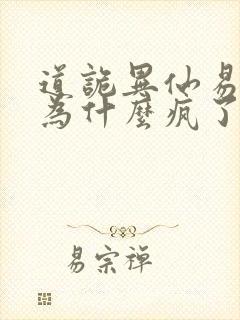 道詭異仙易
為什麼瘋了
易宗禪